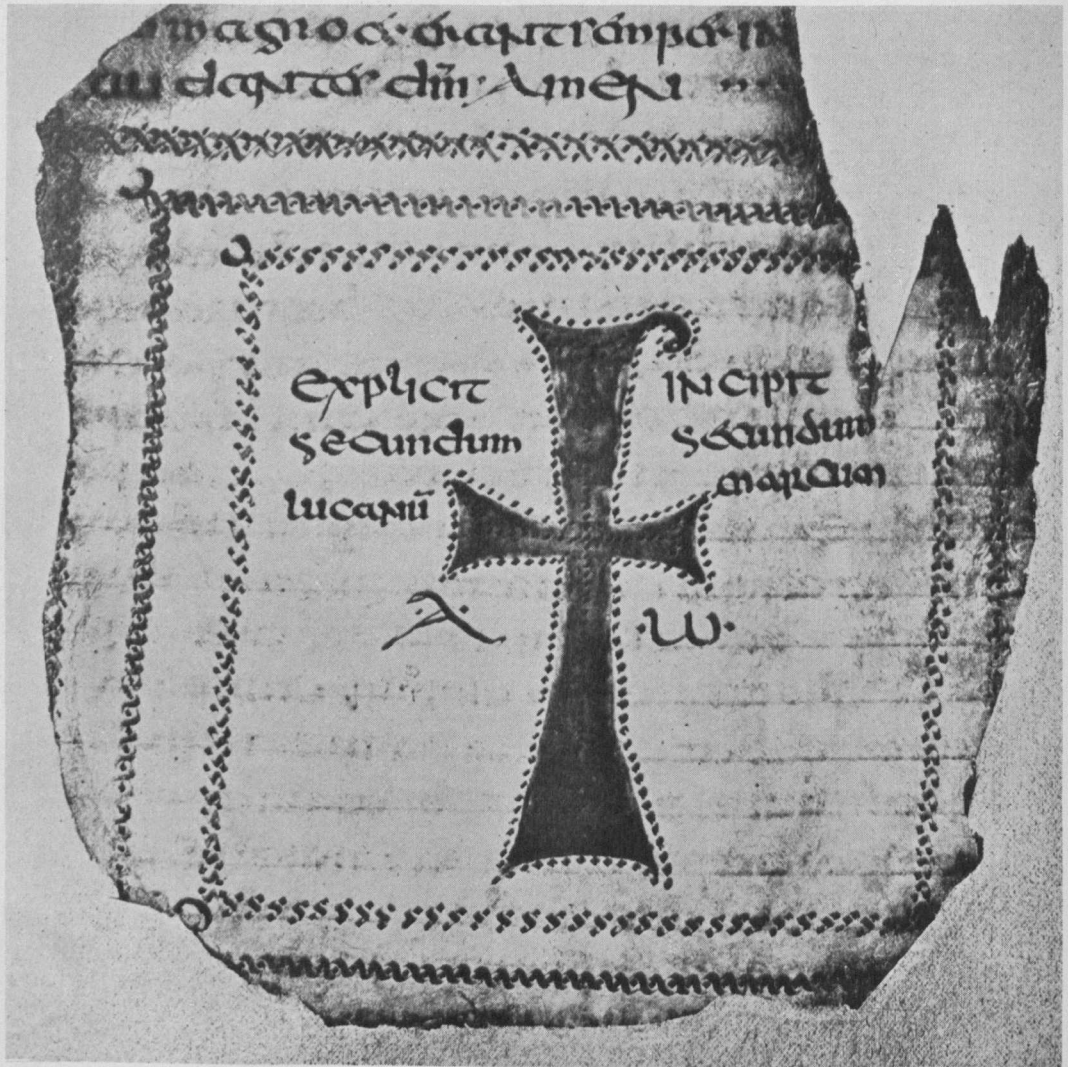 magno erant semper in
audantes dm̄ · Amen
explicit
secundum
lucanū
incipit
secundum
marcum
A· ·ω·